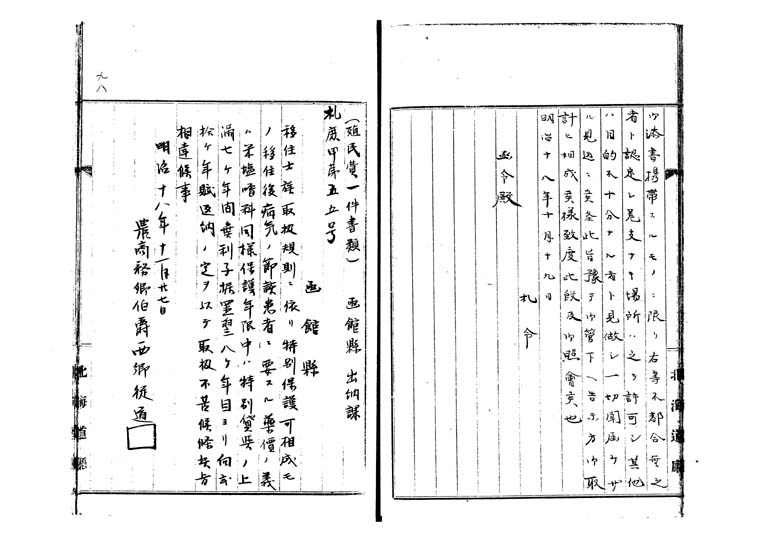 御添書携帯スルモノニ限リ右等不都合無之
者ト認定シ差支ナキ場所ハ之ヲ許可シ其他
ハ目的不十分ナル者ト見做シ一切聞届ケザ
ル見込ニ候条此旨豫テ御管下ヘ告示方御取
計ヒ相成候様致度此段及御照會候也
明治十八年十月十九日
札令
函令殿
北海道廳
(殖民費一件書類) 函館縣 出納課
札庶甲第五五号
函館縣
移住士族取扱規則ニ依リ特別保護可相成モ
ノ移住後病気ノ節該患者ニ要スル藥價ノ義
ハ米塩噌料同様保護年限中ハ特別貸与ノ上
満七ケ年間無利子据置翌八ケ年目ヨリ向弐
拾ケ年賦返納ノ定ヲ以テ取扱不苦候條此旨
相達候事
明治十八年十一月廿七日
農商務卿伯爵西郷従道
北海道廳
九八